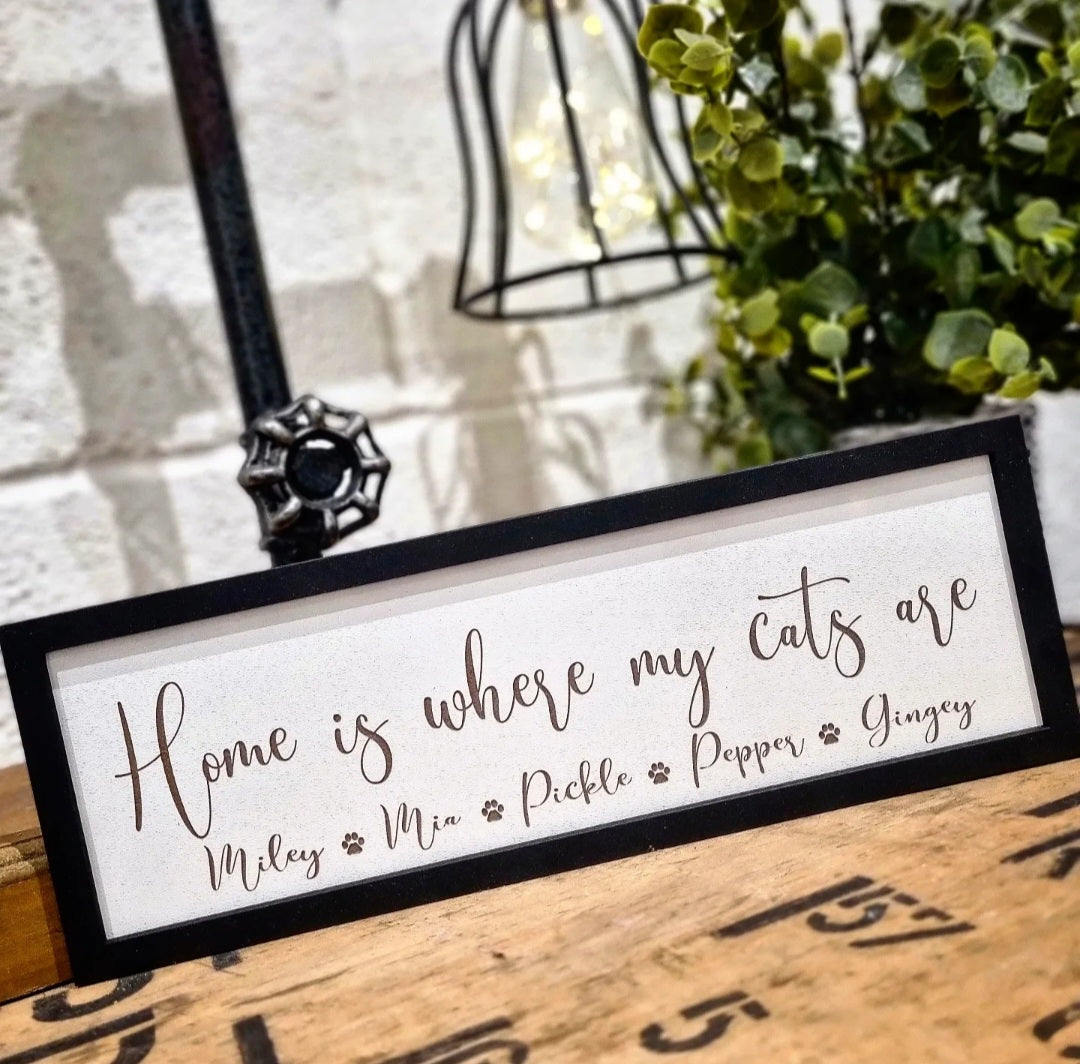 Home is where my cats are
Miley Mia Pickle Pepper Gingey
157
5